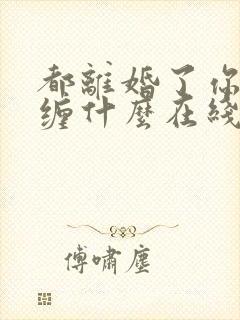 都離婚了你
缠什麼在綫
傅嘯塵